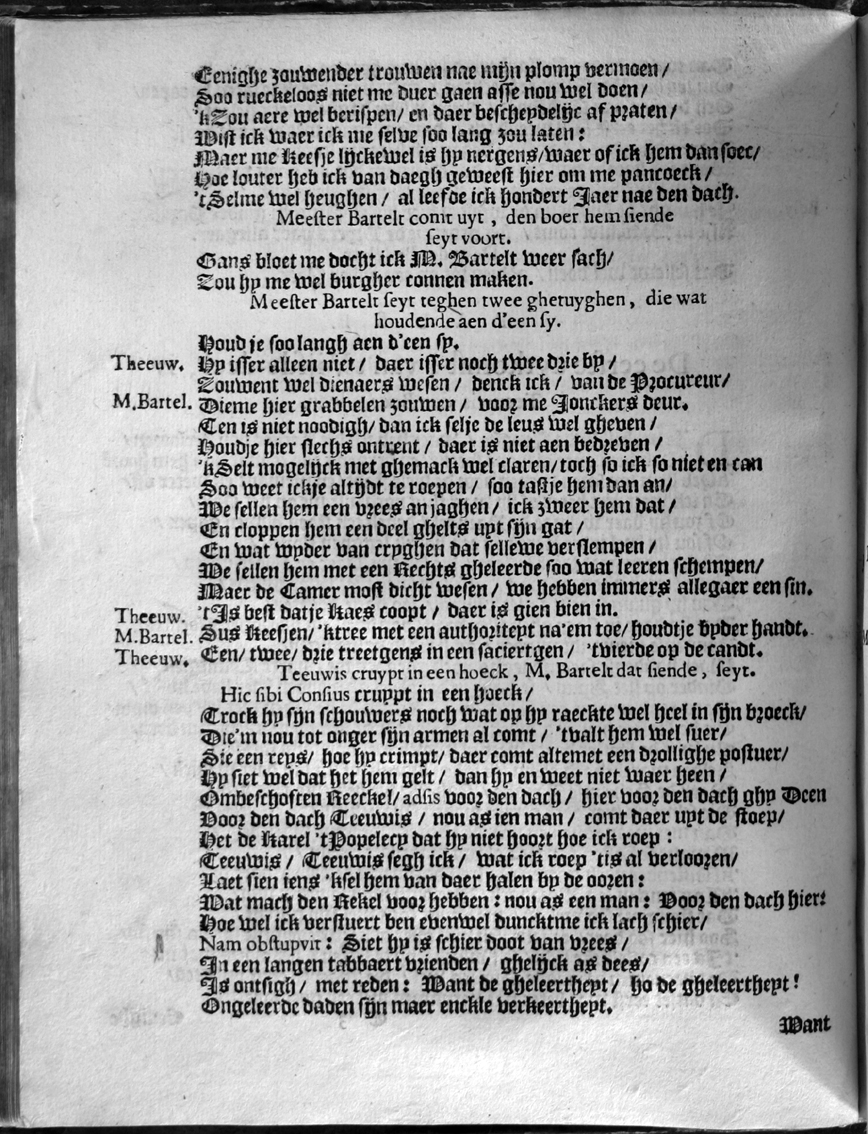 Eenighe zouwender trouwen nae mijn plomp vermoen /
Soo rueckeloos niet me duer gaen asse nou wel doen /
'kZou aere wel berispen / en daer bescheydelijc af praten /
Wist ick waer ick me selve soo lang zou laten :
Maer me Keesje lijckewel is hy nergens / waer of ick hem dan soec /
Hoe louter heb ick van daegh geweest hier om me pancoeck /
'tSelme wel heughen / al leefde ick hondert Jaer nae den dach.
Meester Bartelt comt uyt , den boer hem siende
seyt voort.
Gans bloet me docht ick M. Bartelt weer sach /
Zou hy me wel burgher connen maken.
Meester Bartelt seyt teghen twee ghetuyghen , die wat
houdende aen d'een sy.
Houd je soo langh aen d'een sy.
Theeuw. Hy isser alleen niet / daer isser noch twee drie by /
Zouwent wel dienaers wesen / denck ick / van de Procureur /
M.Bartel. Dieme hier grabbelen zouwen / voor me Jonckers deur.
Ten is niet noodigh / dan ick selje de leus wel gheven /
Houdje hier slechs ontrent / daer is niet aen bedreven /
'kSelt mogelijck met ghemack wel claren / toch so ick so niet en can
Soo weet ickje altijdt te roepen / soo tastje hem dan an /
We sellen hem een vrees an jaghen / ick zweer hem dat /
En cloppen hem een deel ghelts uyt sijn gat /
En wat wyder van cryghen dat sellewe verslempen /
We sellen hem met een Rechts gheleerde soo wat leeren schempen /
Maer de Camer most dicht wesen / we hebben immers allegaer een sin.
Theeuw. 'tIs best datje Kaes coopt / daer is gien bien in.
M.Bartel. Sus Keesjen / 'ktree met een authoriteyt na'em toe / houdtje byder handt.
Theeuw. Een / twee / drie treetgens in een saciertgen / 'tvierde op de candt.
Teeuwis cruypt in een hoeck , M. Bartelt dat siende , seyt.
Hic sibi Consius cruypt in een hoeck /
Trock hy sijn schouwers noch wat op hy raeckte wel heel in sijn broeck /
Die'm nou tot onger sijn armen al comt / 'tvalt hem wel suer /
Sie een reys / hoe hy crimpt / daer comt altemet een drollighe postuer /
Hy siet wel dat het hem gelt / dan hy en weet niet waer heen /
Ombeschoften Keeckel / adsis voor den dach / hier voor den dach ghy Deen
Voor den dach Teeuwis / nou as ien man / comt daer uyt de stoep /
Het de Karel 'tPopelecy dat hy niet hoort hoe ick roep :
Teeuwis / Teeuwis segh ick / wat ick roep 'tis al verlooren /
Laet sien iens 'ksel hem van daer halen by de ooren :
Wat mach den Kekel voor hebben : nou as een man : Voor den dach hier :
Hoe wel ick verstuert ben evenwel dunckt me ick lach schier /
Nam obstupvit : Siet hy is schier doot van vrees /
In een langen tabbaert vrienden / ghelijck as dees /
Is ontsigh / met reden : Want de gheleertheyt / ho de gheleertheyt !
Ongeleerde daden sijn maer enckle verkeertheyt.
Want